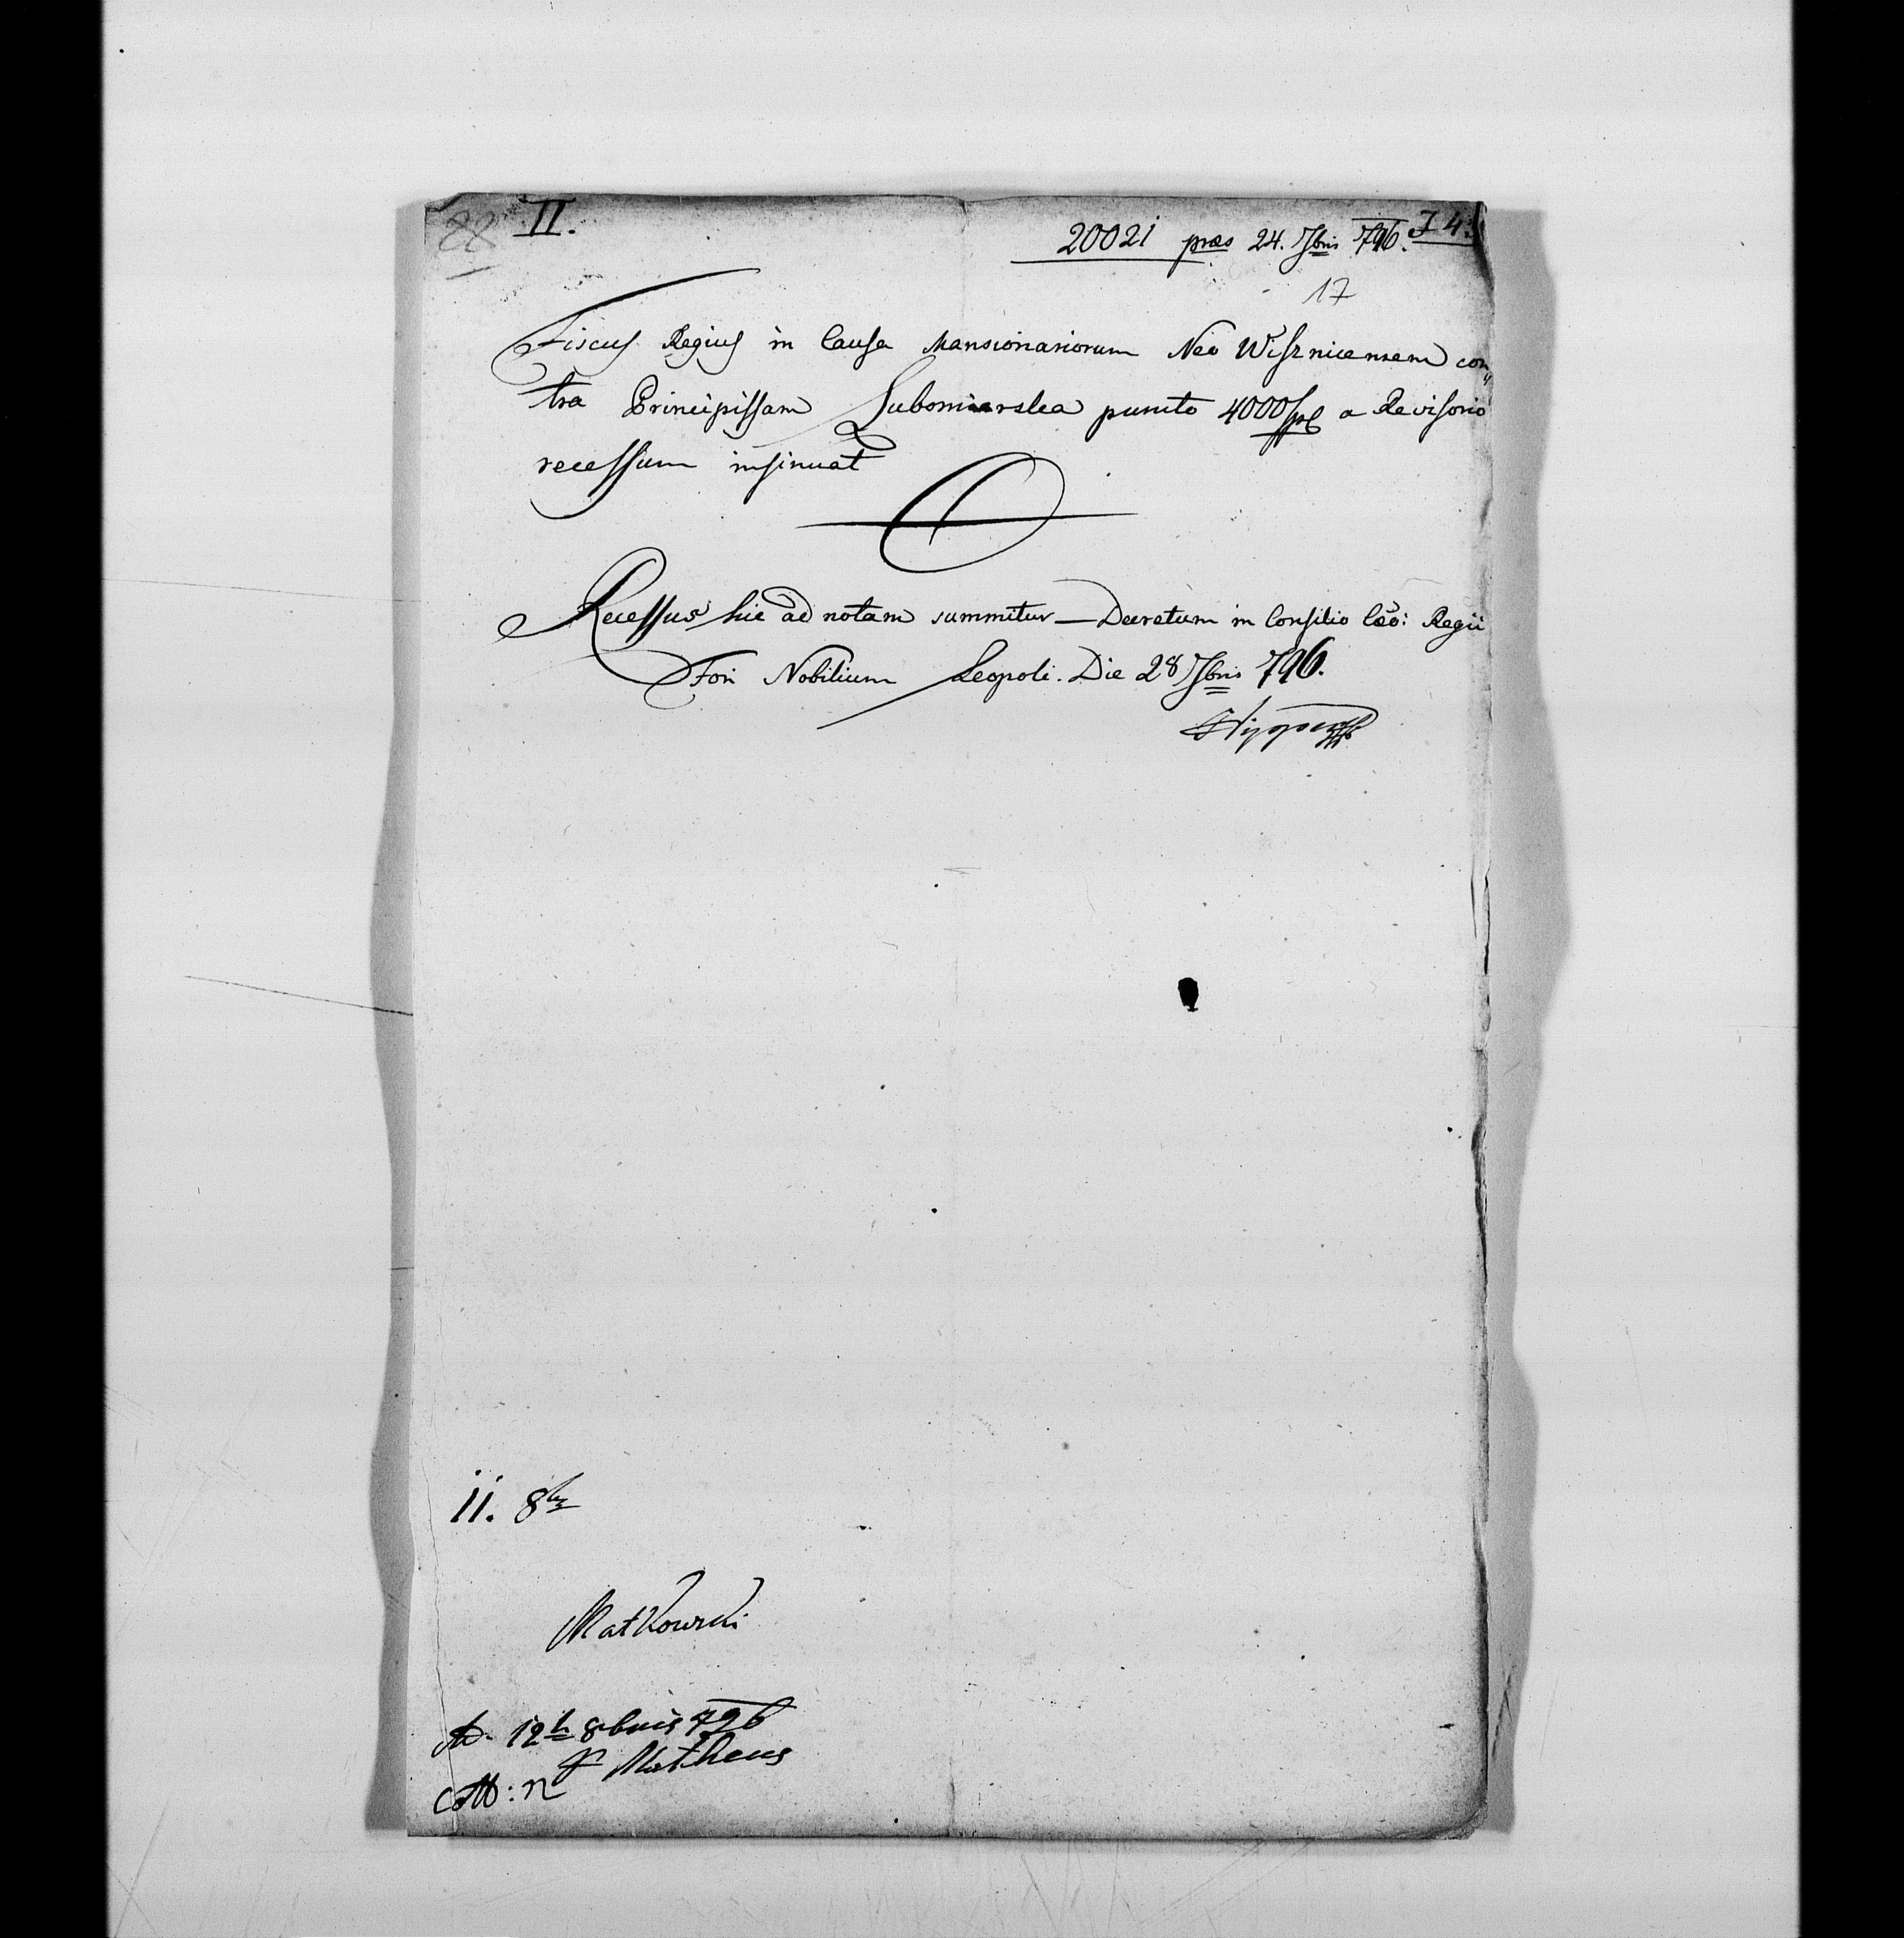 88 II.
20021 præs 24. 7bris 796. J 4:
17
Fiscus Regius in Causa Mansionariorum Neo Wisznicensem con
tra Principissam Lubomirska puncto 4000 fpl a Revisorio
recessum insinuat
Recessus hic ad notam summitur — Decretum in Consilio Cæo: Regii
Fori Nobilium Leopoli. Die 28 7bris 796.
11. 8br
Matkowski
12 8bris 796
Matheus